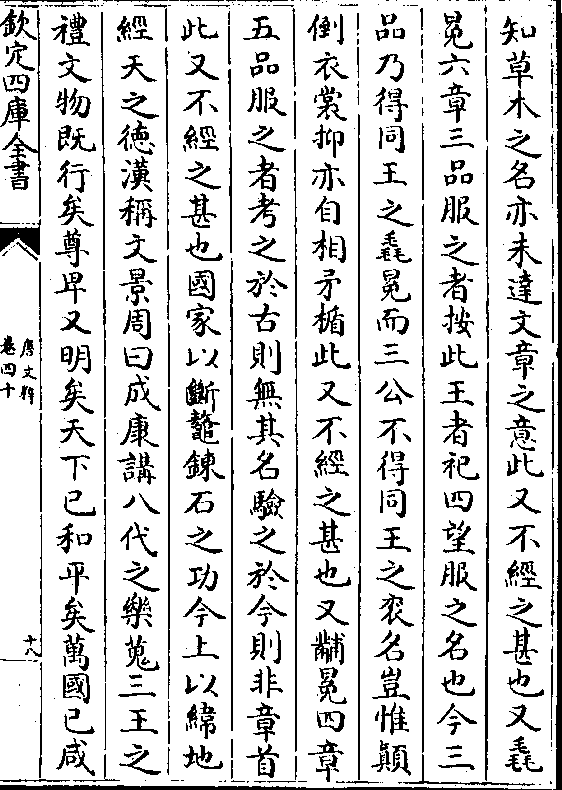 知草木之名亦未達文章之意此又不經之甚也又毳
冕六章三品服之者按此王者祀四望服之名也今三
品乃得同王之毳冕而三公不得同王之衮名豈惟顛
倒衣裳抑亦自相矛楯此又不經之甚也又黼冕四章
五品服之者考之於古則無其名驗之於今則非章首
此又不經之甚也國家以斷鼇鍊石之功今上以緯地
經天之德漢稱文景周曰成康講八代之樂蒐三王之
禮文物既行矣尊卑又明矣天下已和平矣萬國已咸
欽定四庫全書
唐文粹
卷四十
十八